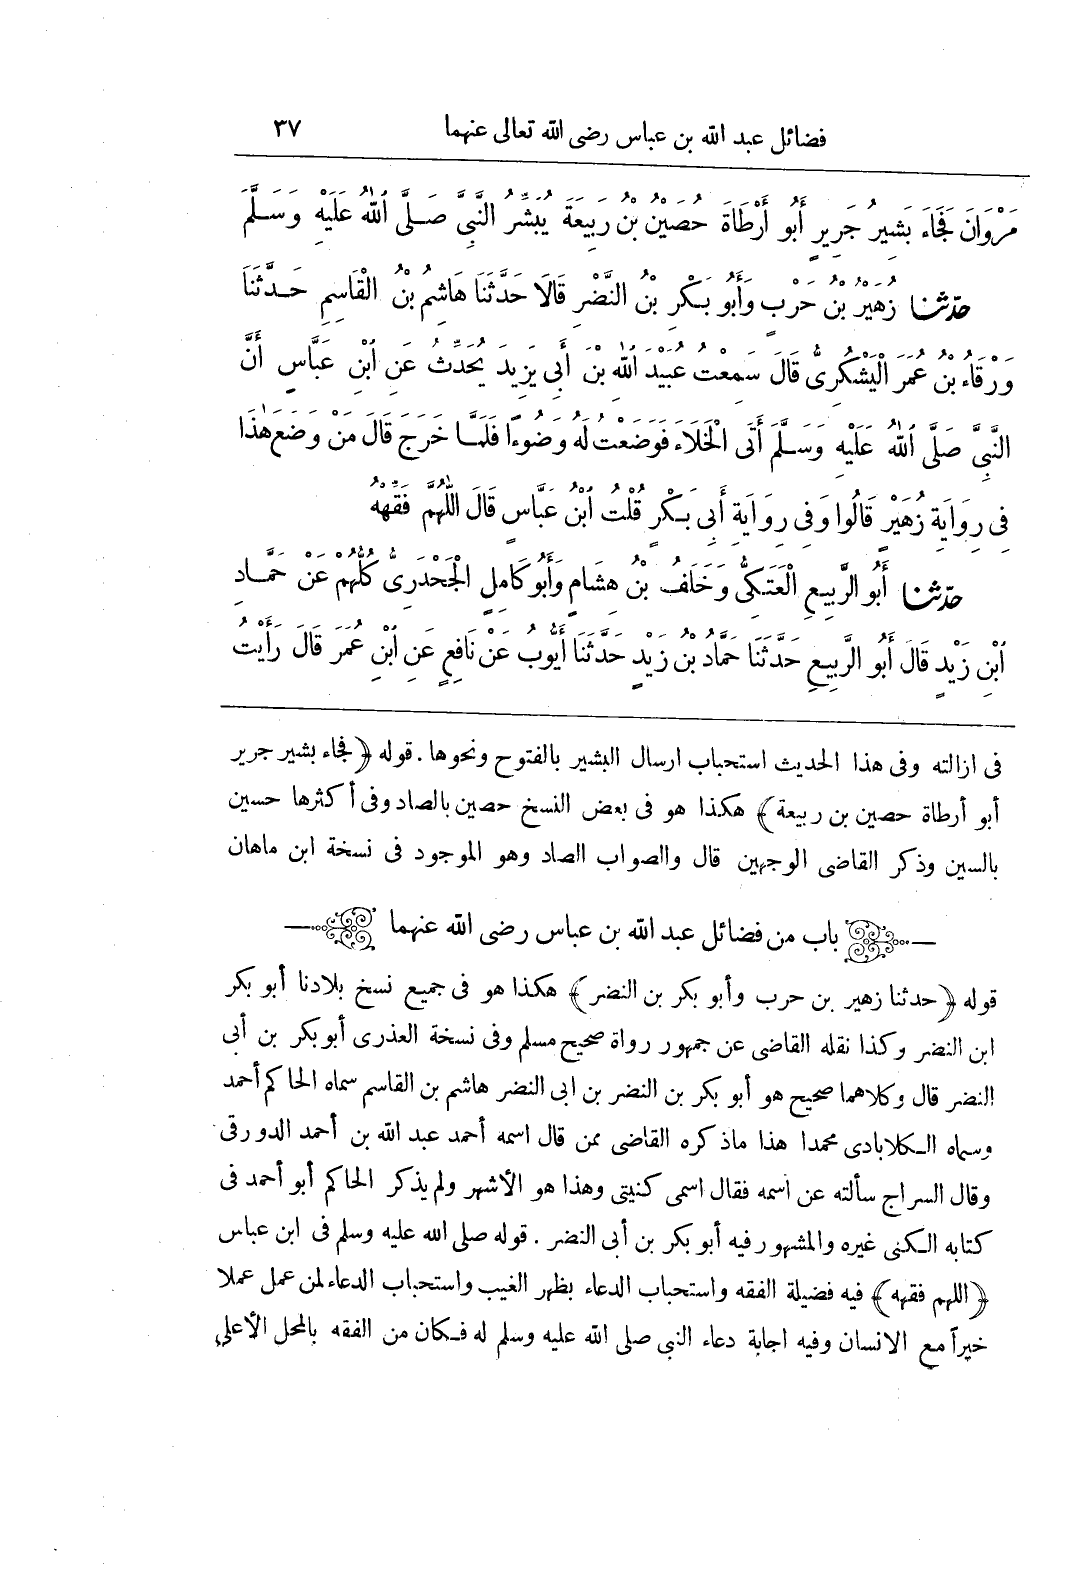 فضائل عبد الله بن عباس رضى الله تعالى عنهما ٣٧
مَرْوَانَ فَجَاءَ بَشِيرُ جَرِيرٍ أَبُو أَرْطَاةَ حُصَيْنُ بْنُ رَبِيعَةَ يُبَشِّرُ النَّبِيَّ صَلَّى اللهُ عَلَيْهِ وَسَلَّمَ
حدّثنا زُهَيْرُ بْنُ حَرْبٍ وَأَبُو بَكْرِ بْنُ النَّضْرِ قَالَا حَدَّثَنَا هَاشِمُ بْنُ الْقَاسِمِ حَدَّثَنَا
وَرْقَاءُ بْنُ عُمَرَ الْيَشْكُرِىُّ قَالَ سَمِعْتُ عُبَيْدَ اللهِ بْنَ أَبِى يَزِيدَ يُحَدِّثُ عَنِ ابْنِ عَبَّاسٍ أَنَّ
النَّبِىَّ صَلَّى اللهُ عَلَيْهِ وَسَلَّمَ أَتَى الْخَلَاءَ فَوَضَعْتُ لَهُ وَضُوءًا فَلَمَّا خَرَجَ قَالَ مَنْ وَضَعَ هٰذَا
فِى رِوَايَةِ زُهَيْرٍ قَالُوا وَفِى رِوَايَةِ أَبِى بَكْرٍ قُلْتُ ابْنُ عَبَّاسٍ قَالَ اللّٰهُمَّ فَقِّهْهُ
حدّثنا أَبُو الرَّبِيعِ الْعَتَكِىُّ وَخَلَفُ بْنُ هِشَامٍ وَأَبُو كَامِلٍ الْجَحْدَرِىُّ كُلُّهُمْ عَنْ حَمَّادِ
ابْنِ زَيْدٍ قَالَ أَبُو الرَّبِيعِ حَدَّثَنَا حَمَّادُ بْنُ زَيْدٍ حَدَّثَنَا أَيُّوبُ عَنْ نَافِعٍ عَنِ ابْنِ عُمَرَ قَالَ رَأَيْتُ
فى ازالته وفى هذا الحديث استحباب ارسال البشير بالفتوح ونحوها . قوله ﴿فجاء بشير جرير
أبو أرطاة حصين بن ربيعة﴾ هكذا هو فى بعض النسخ حصين بالصاد وفى أكثرها حسين
بالسين وذكر القاضى الوجهين قال والصواب الصاد وهو الموجود فى نسخة ابن ماهان
باب من فضائل عبد الله بن عباس رضى الله عنهما
قوله ﴿حدثنا زهير بن حرب وأبو بكر بن النضر﴾ هكذا هو فى جميع نسخ بلادنا أبو بكر
ابن النضر وكذا نقله القاضى عن جمهور رواة صحيح مسلم وفى نسخة العذرى أبو بكر بن أبى
النضر قال وكلاهما صحيح هو أبو بكر بن النضر بن ابى النضر هاشم بن القاسم سماه الحاكم أحمد
وسماه الكلابادى محمدا هذا ماذكره القاضى ممن قال اسمه أحمد عبد الله بن أحمد الدورقى
وقال السراج سألته عن اسمه فقال اسمى كنيتى وهذا هو الأشهر ولم يذكر الحاكم أبو أحمد فى
كتابه الكنى غيره والمشهور فيه أبو بكر بن أبى النضر . قوله صلى الله عليه وسلم فى ابن عباس
﴿اللهم فقهه﴾ فيه فضيلة الفقه واستحباب الدعاء بظهر الغيب واستحباب الدعاء لمن عمل عملا
خيراً مع الانسان وفيه اجابة دعاء النبى صلى الله عليه وسلم له فكان من الفقه بالمحل الأعلى